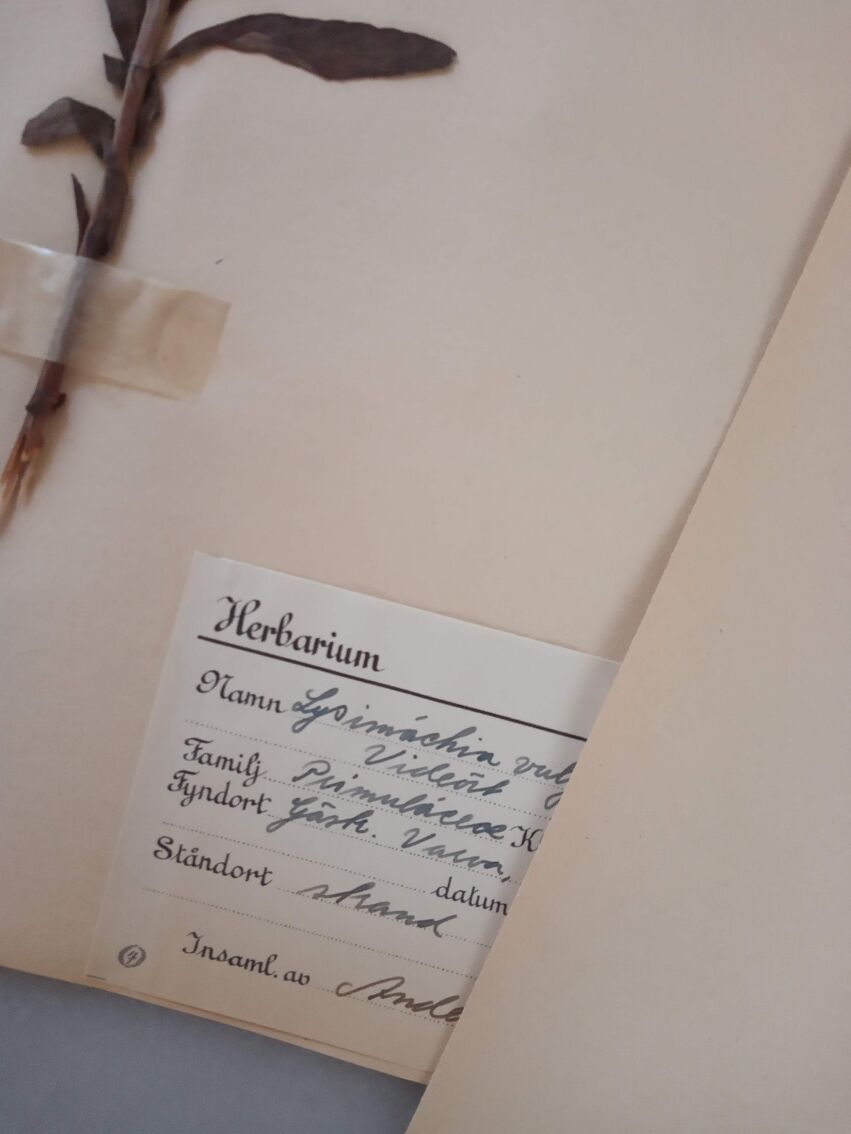 Herbarium
Namn Lysimáchia vulg
Videört
Familj Primuláceae K
Fyndort Gästr. Valva,
datum
Ståndort strand
Insaml. av Ande
4